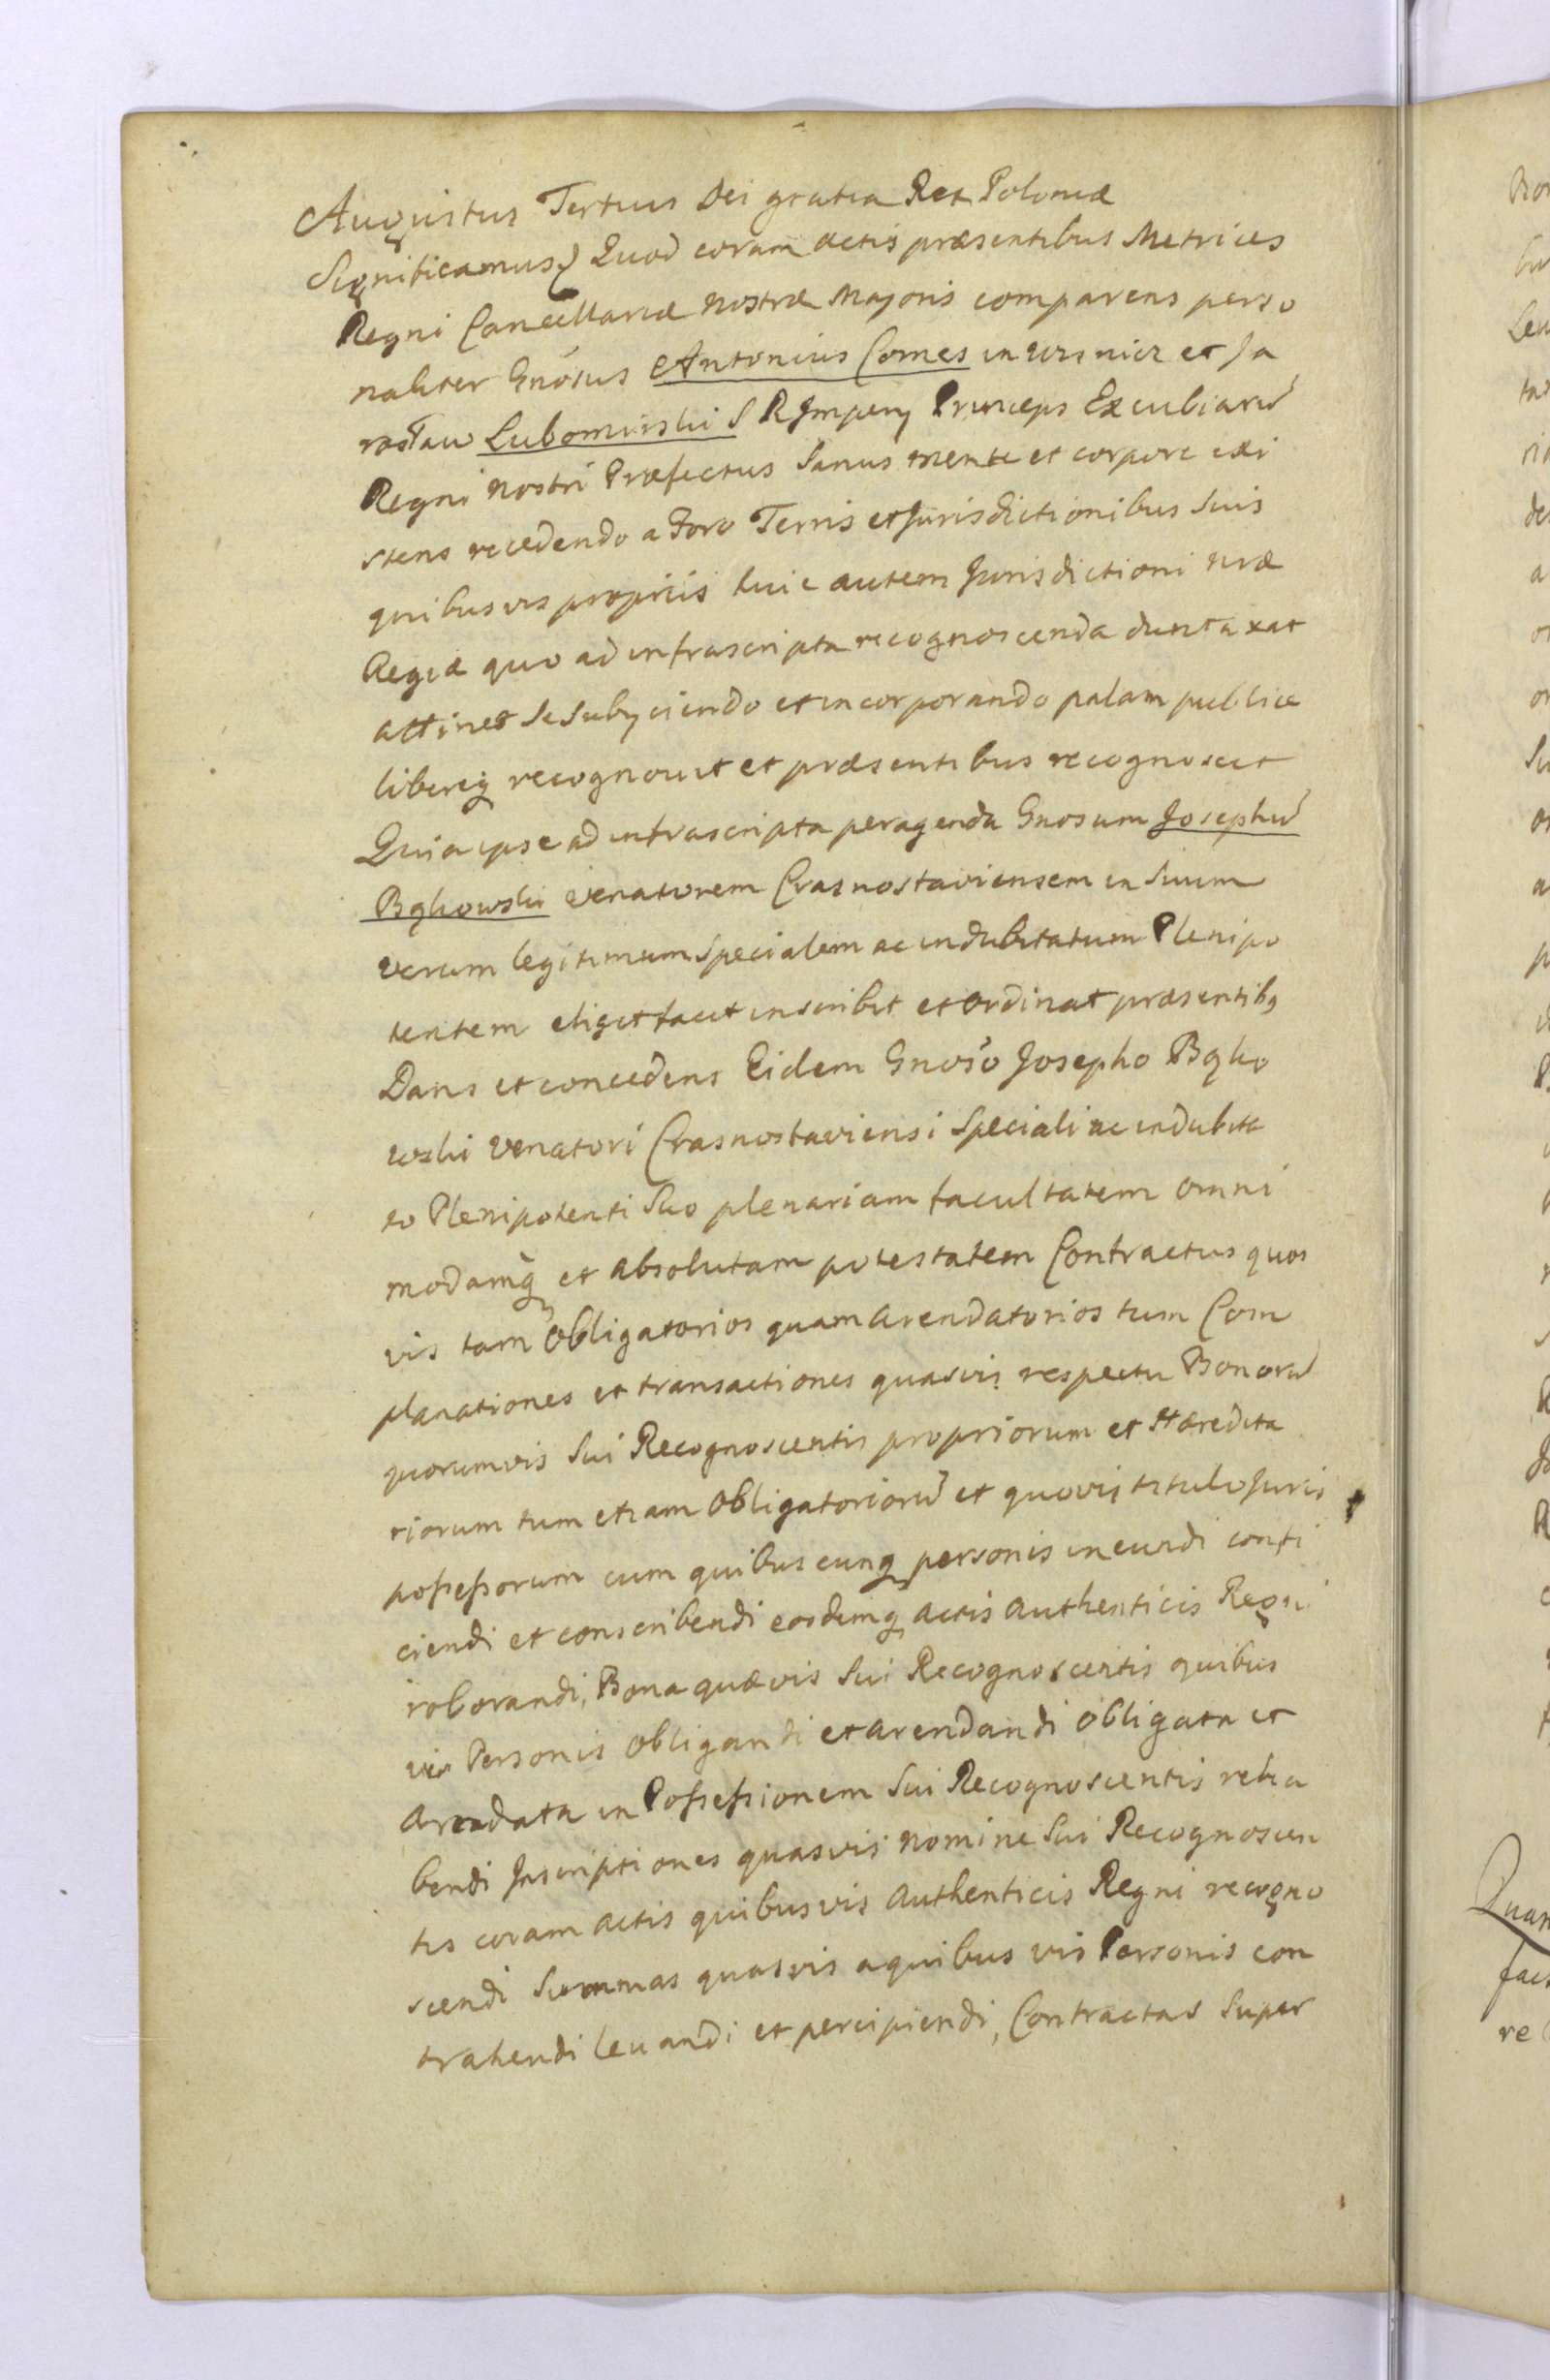 Augustus Tertius Dei gratia Rex Poloniæ
Significamus Quod coram actis præsentibus Metrices
Regni Cancellariæ nostræ Majoris comparens perso
naliter Gnosus Antonius Comes in Wisnicz et Ja
rosław Lubomirski S R Imperij Princeps Excubiarũ
Regni nostri Præfectus Sanus mente et corpore exi
stens recedendo a Foro Terris et Jurisdictionibus Suis
quibusvis propriis huic autem Jurisdictioni nræ
Regiæ quo ad infrascripta recognoscenda duntaxat
attinet se subijciendo et incorporando palam publice
libereq recognovit et præsentibus recognoscit
Quia ipse ad infrascripta peragenda Gnosum Josephũ
Bąkowski Venatorem Crasnostaviensem in Suum
verum legitimum specialem ac indubitatum Plenipo
tentem eligit facit inscribit et ordinat præsentibq
Dans et concedens Eidem Gnoso Josepho Bąko
wski Venatori Crasnostaviensi Speciali ac indubita
to Plenipotenti Suo plenariam facultatem omni
modamq et absolutam potestatem Contractus quos
vis tam Obligatorios quam arendatorios tum Com
planationes et transactiones quasvis respectu Bonorũ
quorumvis Sui Recognoscentis propriorum et Hæredita
riorum tum etiam Obligatoriorũ et quovis titulo Juris
possessorum cum quibuscunq personis ineundi confi
ciendi et conscribendi eosdemq actis authenticis Regni
roborandi, Bona quævis Sui Recognoscentis quibus
vis Personis obligandi et arendandi obligata et
arendata in Possessionem Sui Recognoscentis reha
bendi Inscriptiones quasvis nomine Sui Recognoscen
tis coram actis quibusvis authenticis Regni recogno
scendi Summas quasvis a quibus vis Personis con
trahendi levandi et percipiendi, Contractas Super